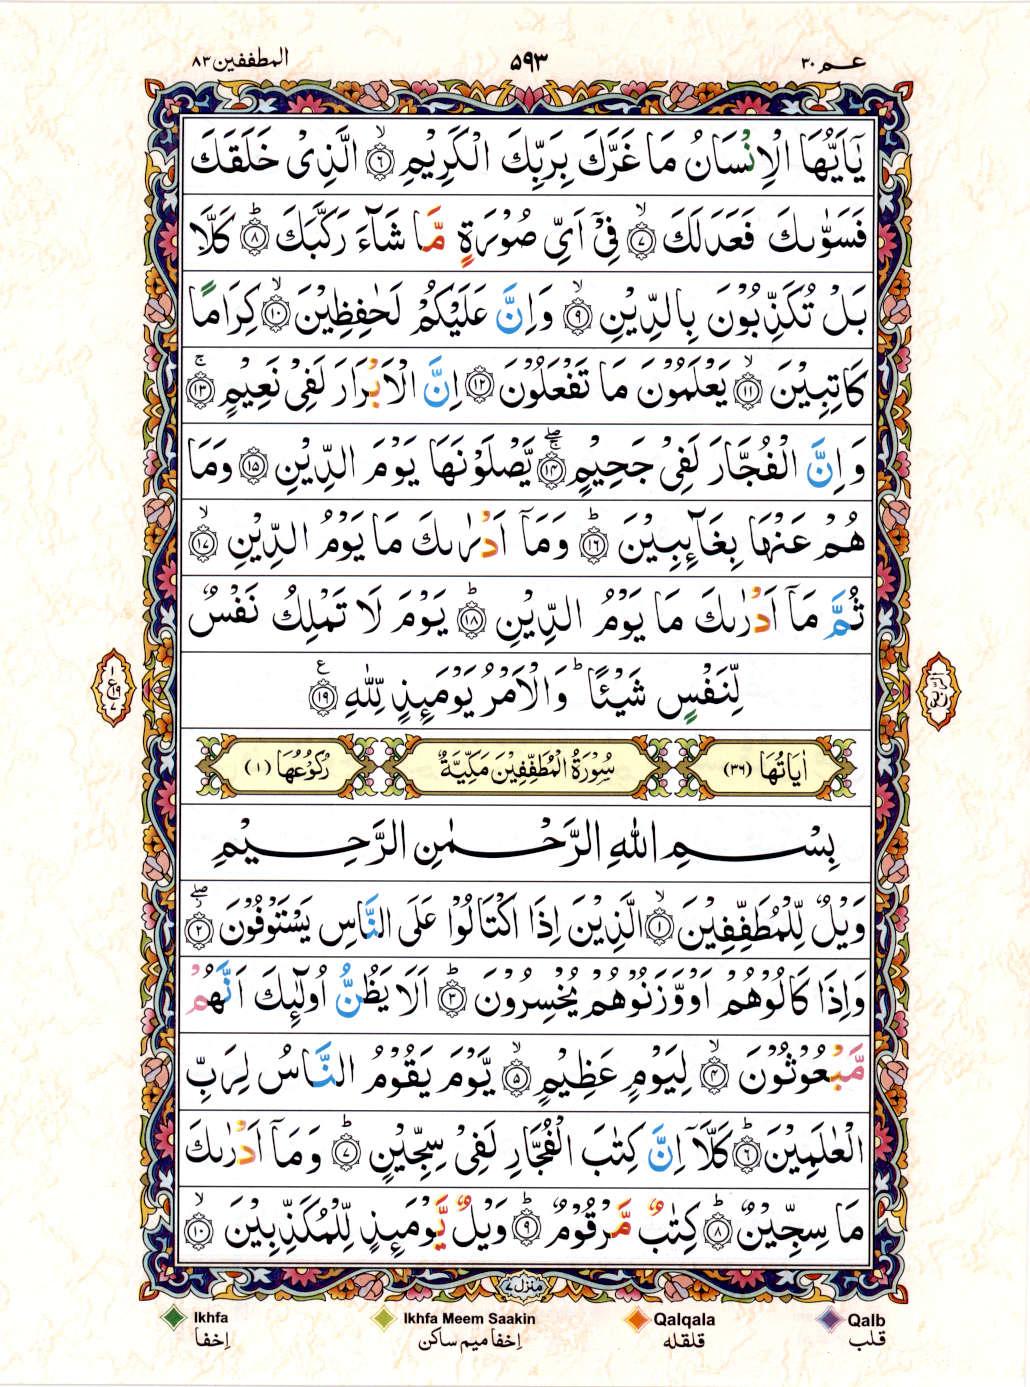 عـم ٣٠
۵۹۳
المطففین ٨٣
يٰۤاَيُّهَا الْاِنْسَانُ مَا غَرَّكَ بِرَبِّكَ الْكَرِيْمِۙ‏ ﴿۶﴾ الَّذِىْ خَلَقَكَ
فَسَوّٰٮكَ فَعَدَلَكَۙ‏ ﴿۷﴾ فِىْۤ اَىِّ صُوْرَةٍ مَّا شَآءَ رَكَّبَكَؕ‏ ﴿۸﴾ كَلَّا
بَلْ تُكَذِّبُوْنَ بِالدِّيْنِۙ‏ ﴿۹﴾ وَاِنَّ عَلَيْكُمْ لَحٰفِظِيْنَۙ‏ ﴿۱۰﴾ كِرَامًا
كَاتِبِيْنَۙ‏ ﴿۱۱﴾ يَعْلَمُوْنَ مَا تَفْعَلُوْنَ‏ ﴿۱۲﴾ اِنَّ الْاَبْرَارَ لَفِىْ نَعِيْمٍۚ‏ ﴿۱۳﴾
وَاِنَّ الْفُجَّارَ لَفِىْ جَحِيْمٍ ۖۚ‏ ﴿۱۴﴾ يَّصْلَوْنَهَا يَوْمَ الدِّيْنِ‏ ﴿۱۵﴾ وَمَا
هُمْ عَنْهَا بِغَآئِبِيْنَؕ‏ ﴿۱۶﴾ وَمَاۤ اَدْرٰٮكَ مَا يَوْمُ الدِّيْنِۙ‏ ﴿۱۷﴾
ثُمَّ مَاۤ اَدْرٰٮكَ مَا يَوْمُ الدِّيْنِؕ‏ ﴿۱۸﴾ يَوْمَ لَا تَمْلِكُ نَفْسٌ
لِّنَفْسٍ شَيْئًا ؕ وَالْاَمْرُ يَوْمَئِذٍ لِّلّٰهِ‏ ﴿۱۹﴾ ع
اٰيَاتُهَا (٣٦) سُوْرَةُ الْمُطَفِّفِيْنَ مَكِّيَّةٌ رُكُوْعُهَا (١)
بِسْمِ اللهِ الرَّحْمٰنِ الرَّحِيْمِ
وَيْلٌ لِّلْمُطَفِّفِيْنَۙ‏ ﴿۱﴾ الَّذِيْنَ اِذَا اكْتَالُوْا عَلَى النَّاسِ يَسْتَوْفُوْنَۖ‏ ﴿۲﴾
وَاِذَا كَالُوْهُمْ اَوْ وَّزَنُوْهُمْ يُخْسِرُوْنَؕ‏ ﴿۳﴾ اَلَا يَظُنُّ اُولٰٓئِكَ اَنَّهُمْ
مَّبْعُوْثُوْنَۙ‏ ﴿۴﴾ لِيَوْمٍ عَظِيْمٍۙ‏ ﴿۵﴾ يَّوْمَ يَقُوْمُ النَّاسُ لِرَبِّ
الْعٰلَمِيْنَؕ‏ ﴿۶﴾ كَلَّاۤ اِنَّ كِتٰبَ الْفُجَّارِ لَفِىْ سِجِّيْنٍؕ‏ ﴿۷﴾ وَمَاۤ اَدْرٰٮكَ
مَا سِجِّيْنٌؕ‏ ﴿۸﴾ كِتٰبٌ مَّرْقُوْمٌؕ‏ ﴿۹﴾ وَيْلٌ يَّوْمَئِذٍ لِّلْمُكَذِّبِيْنَۙ‏ ﴿۱۰﴾
الربع
١ ع ١٩ ٧
منزل ٧
Ikhfa Ikhfa Meem Saakin Qalqala Qalb
اِخفا اِخفا میم ساکن قلقله قلب